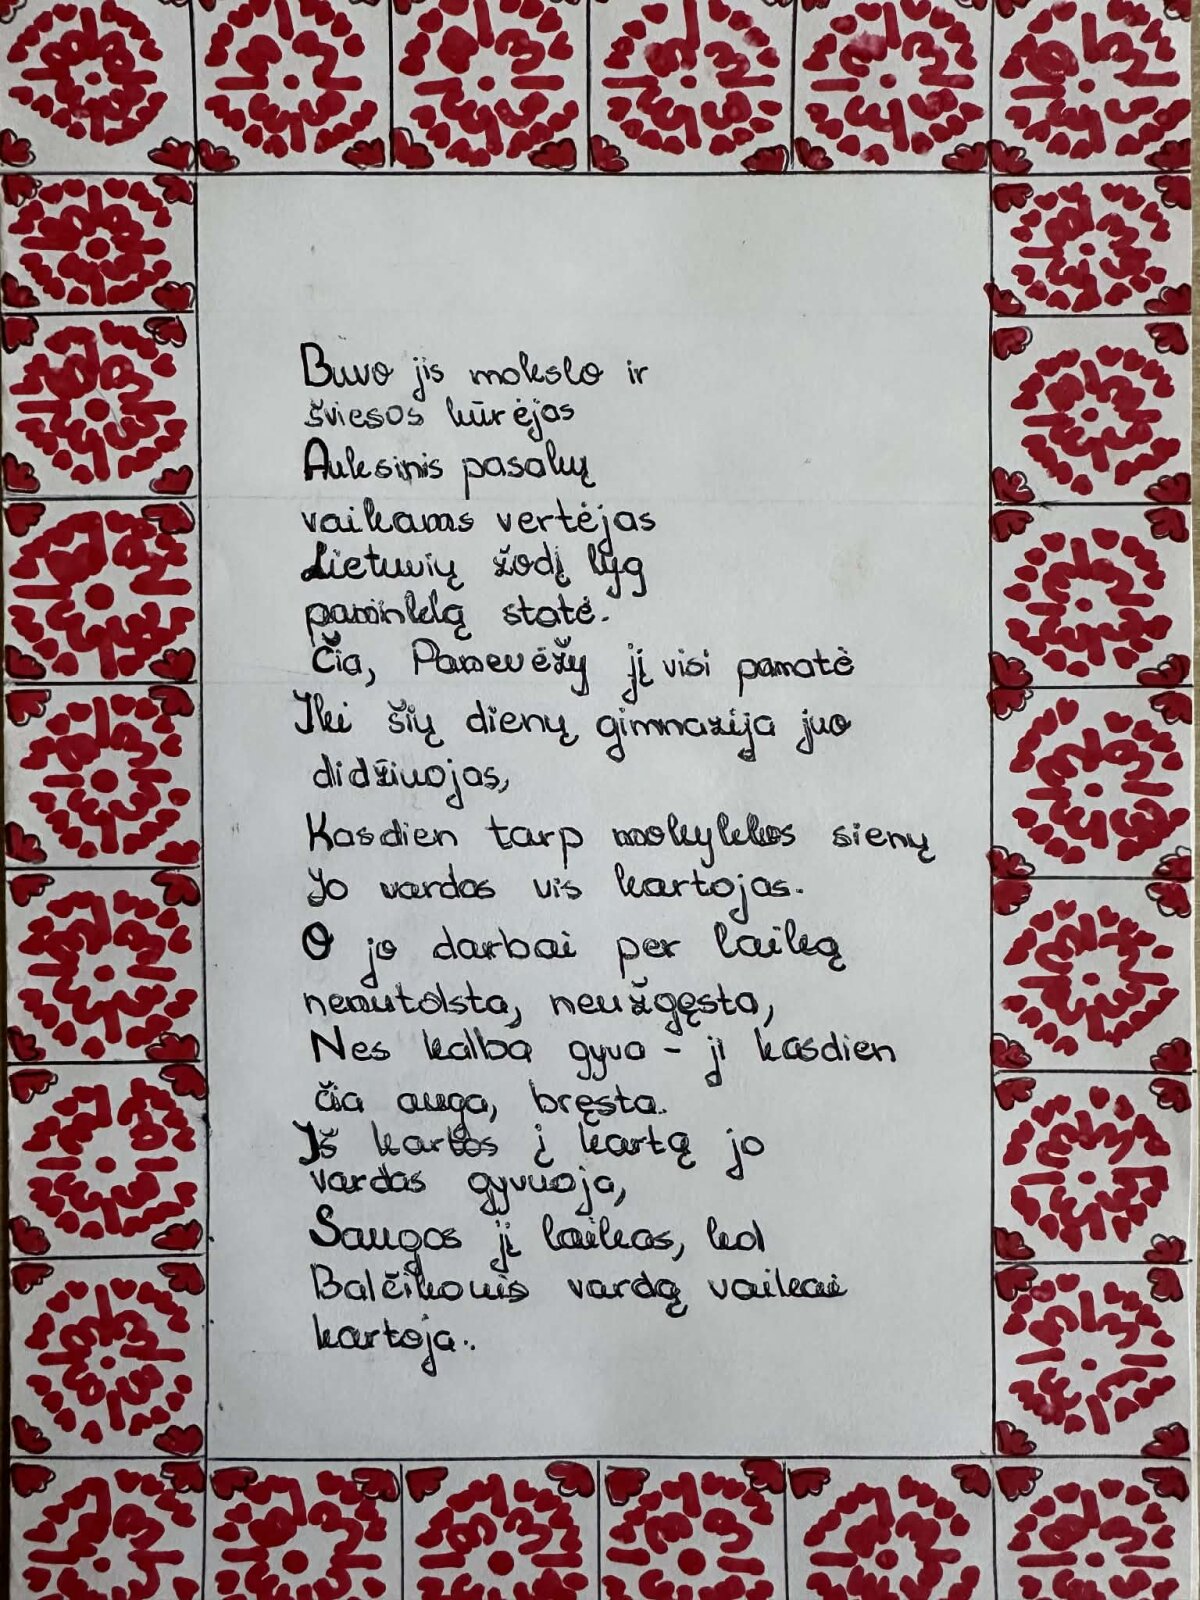 Buvo jis mokslo ir
šviesos kūrėjas
Auksinis pasakų
vaikams vertėjas
Lietuvių žodį lyg
paminklą statė.
Čia, Panevėžy jį visi pamatė
Iki šių dienų gimnazija juo
didžiuojas,
Kasdien tarp mokyklos sienų
Jo vardas vis kartojas.
O jo darbai per laiką
nenutolsta, neužgęsta,
Nes kalba gyva - ji kasdien
čia auga, bręsta.
Iš kartos į kartą jo
vardas gyvuoja,
Saugos jį laikas, kol
Balčikonis vardą vaikai
kartoja.